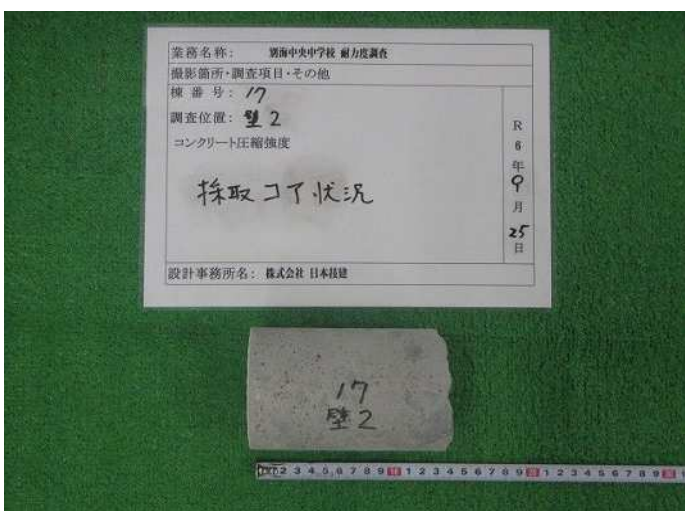 業務名称: 別海中央中学校 耐力度調査
撮影箇所・調査項目・その他
棟番号: 17
調査位置: 壁2
コンクリート圧縮強度
採取コア状況
R
6
年
9
月
25
日
設計事務所名: 株式会社 日本技建
17
壁2
2 3 4 5 6 7 8 9 10 1 2 3 4 5 6 7 8 9 20 1 2 3 4 5 6 7 8 9 30